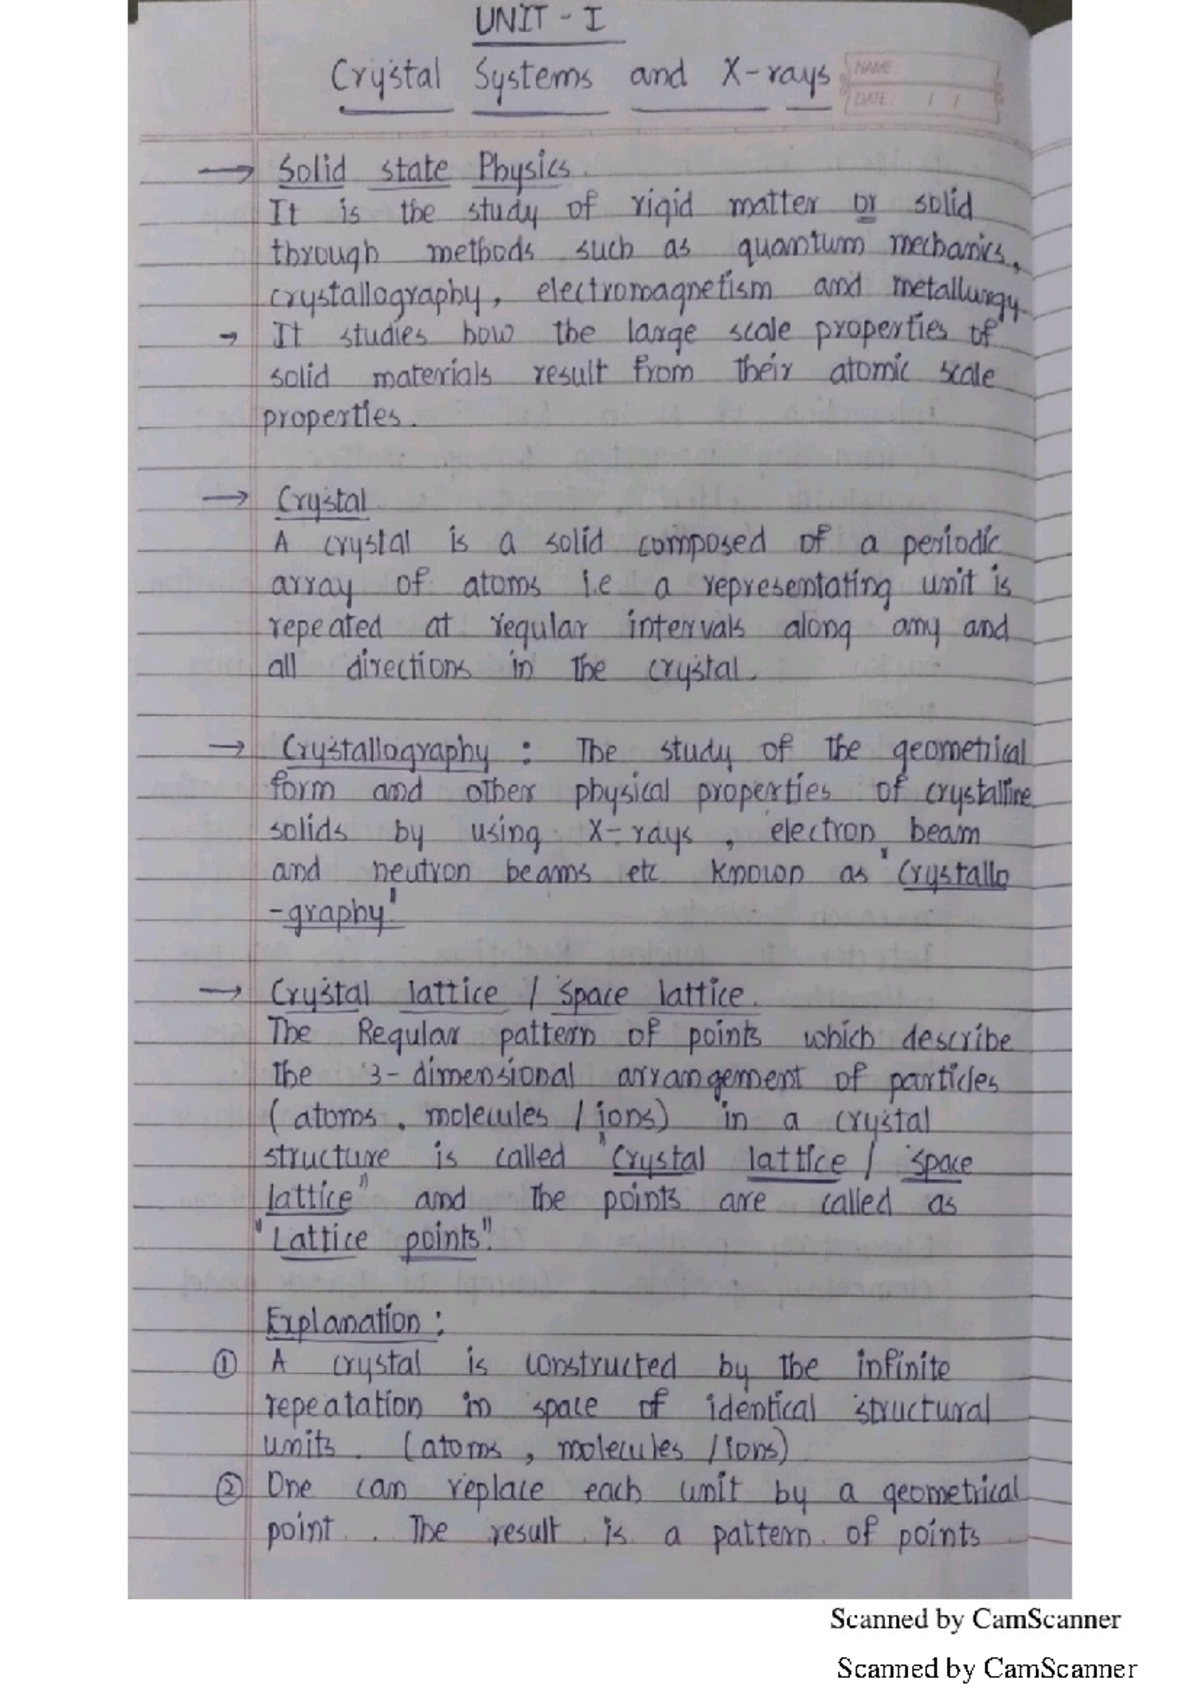 UNIT - I
Crystal Systems and X-rays
NAME:
DATE: / /
→ Solid state Physics.
It is the study of rigid matter or solid
through methods such as quantum mechanics,
crystallography, electromagnetism and metallurgy
→ It studies how the large scale properties of
solid materials result from their atomic scale
properties.
→ Crystal
A crystal is a solid composed of a periodic
array of atoms i.e a representating unit is
repeated at regular intervals along any and
all directions in the crystal.
→ Crystallography : The study of the geometrical
form and other physical properties of crystalline
solids by using X-rays, electron beam
and neutron beams etc known as "Crystallo
-graphy"
→ Crystal lattice / Space lattice.
The Regular pattern of points which describe
the 3-dimensional arrangement of particles
(atoms, molecules / ions) in a crystal
structure is called "Crystal lattice / space
lattice" and the points are called as
"Lattice points".
Explanation :
① A crystal is constructed by the infinite
repeatation in space of identical structural
units. (atoms, molecules / ions)
② One can replace each unit by a geometrical
point. The result is a pattern of points
Scanned by CamScanner
Scanned by CamScanner